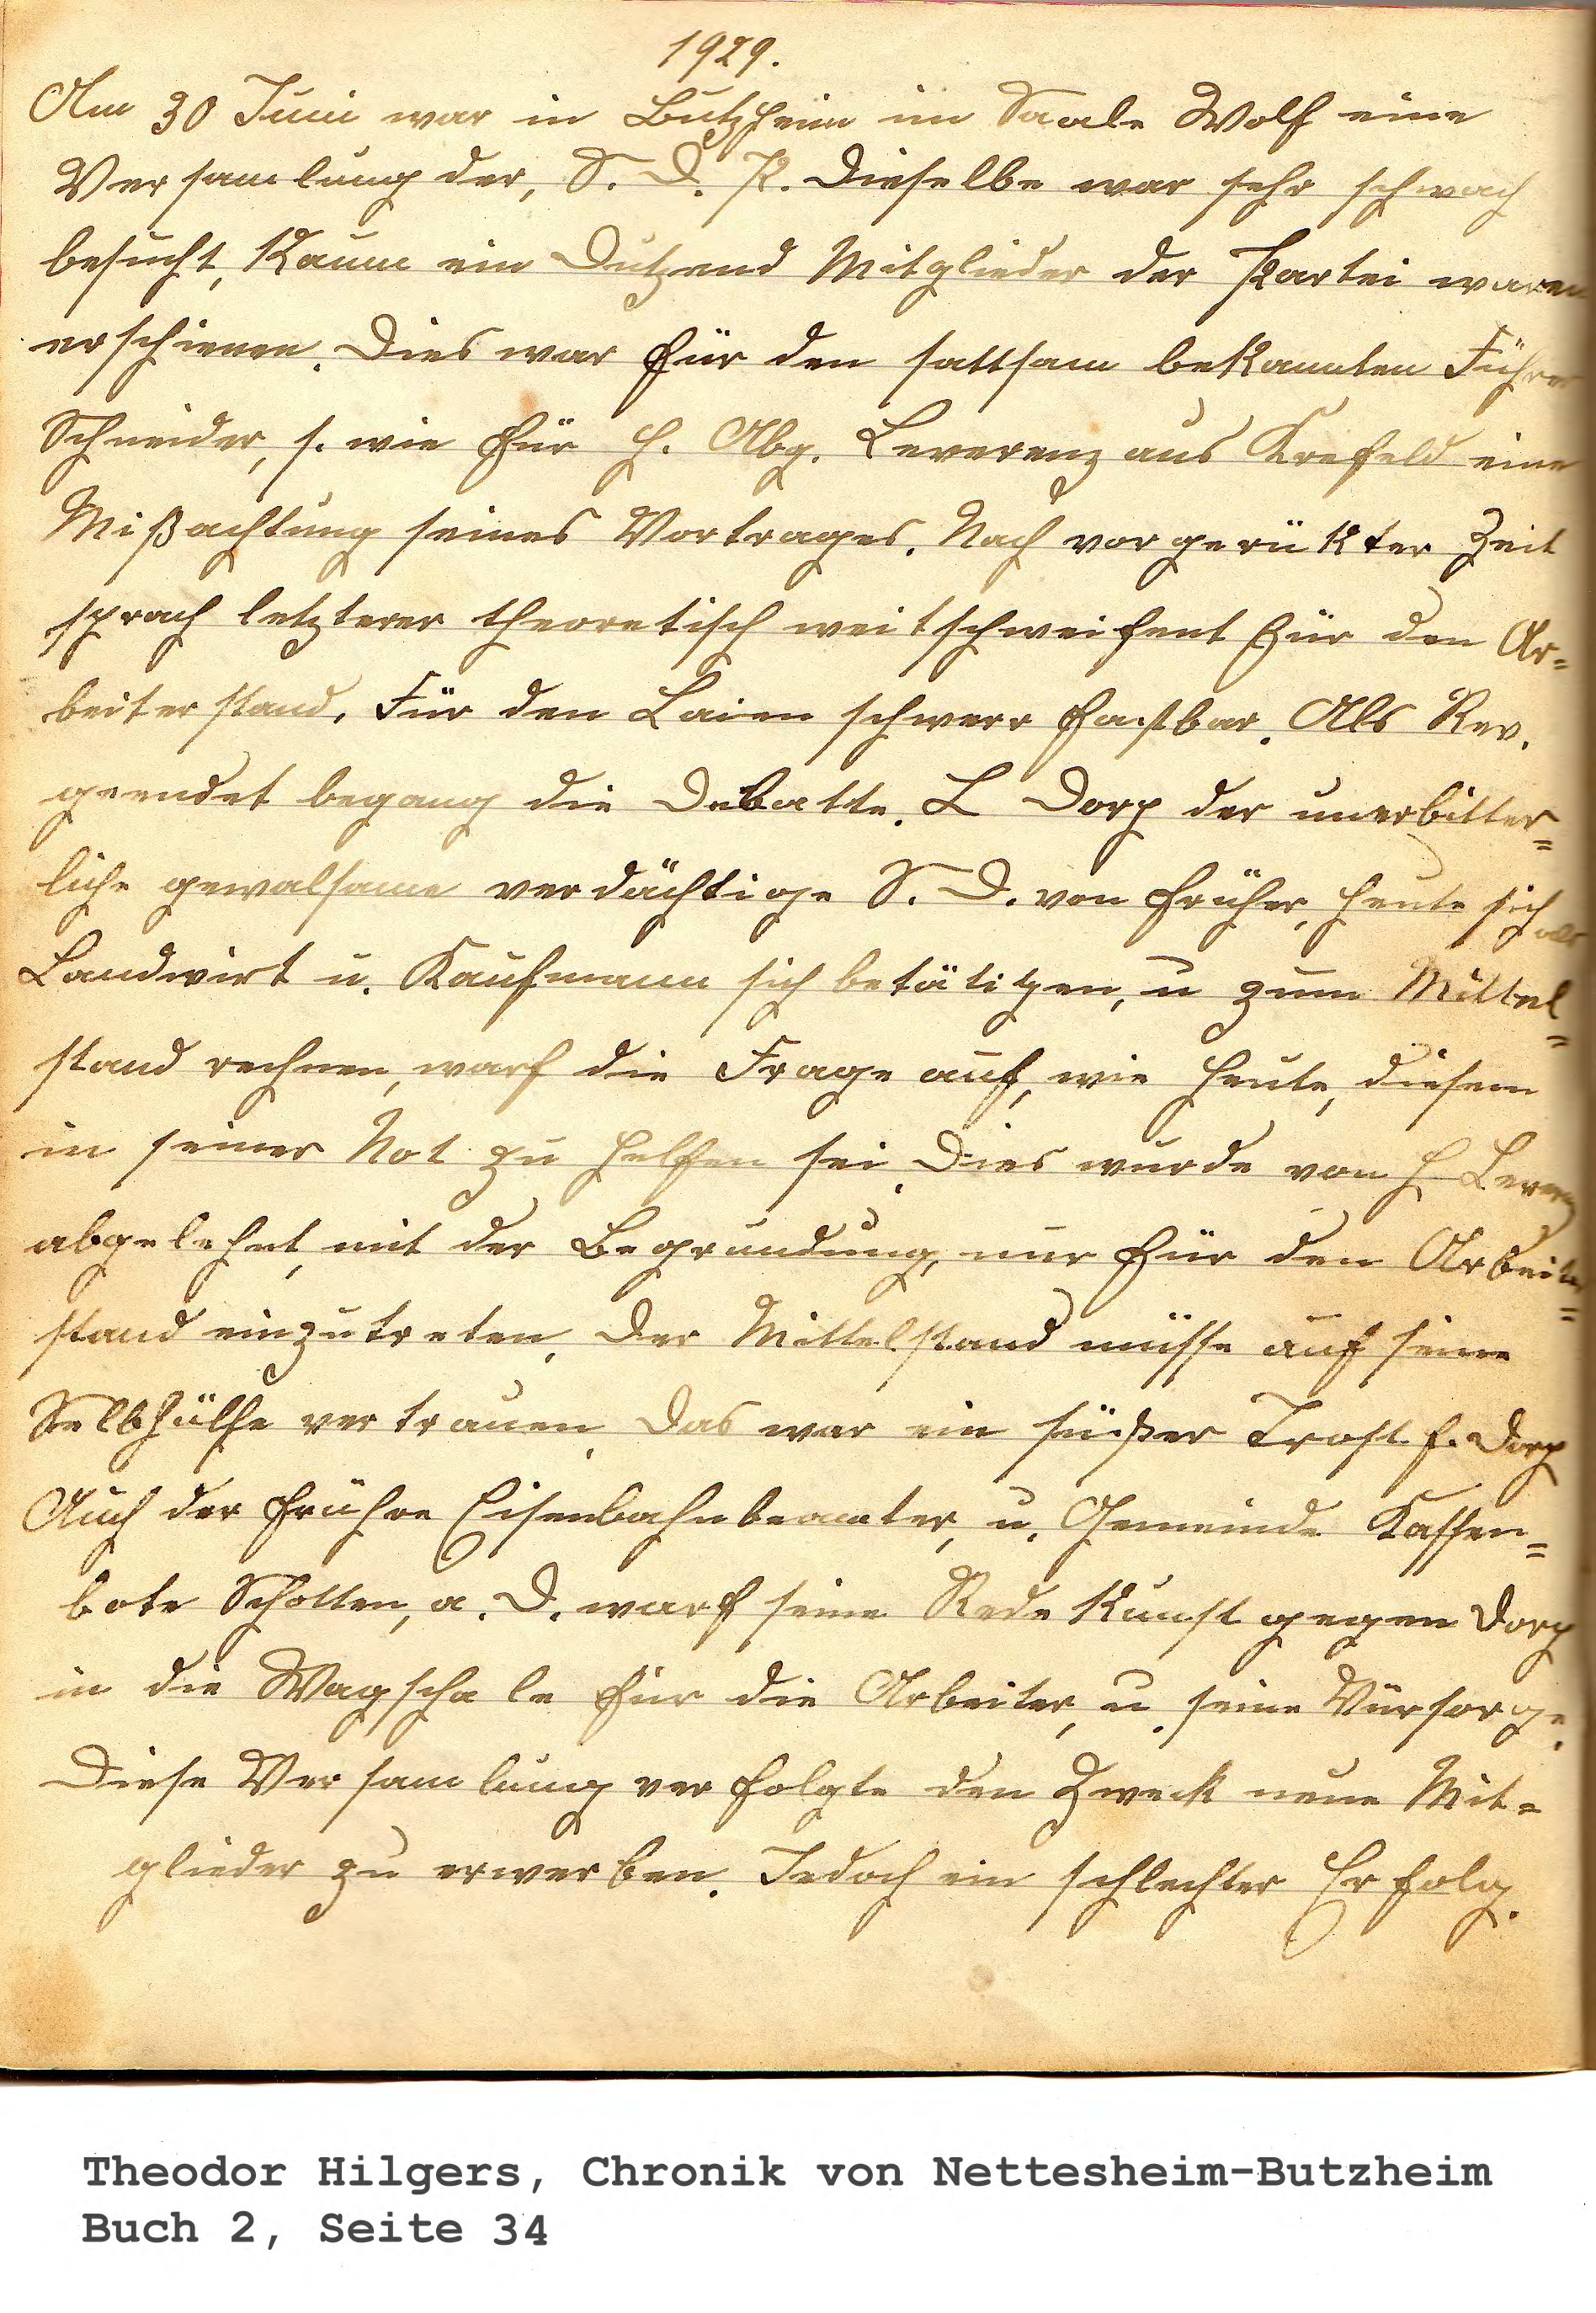 1929.
Am 30 Juni war in Butzheim im Saale Wolf eine
Versamlung der, S. D. P. Dieselbe war sehr schwach
besucht, Kaum ein Dutzend Mitglieder der Partei waren
erschienen. Dies war für den sattsam bekannten Führer
Schneider, s. wie für H. Abg. Leverenz aus Krefeld eine
Mißachtung seines Vortrages. Nach vorgerükter Zeit
sprach letzterer theoretisch weitschweifent für den Ar=
beiterstand. Für den Laien schwerr fastbar. Als Rev.
geendet begang die Debatte. L Dorp der unerbitter=
liche gewalsame verdächtige S. D. von früher, heute sich als
Landwirt u. Kaufmann sich betätigen, u zum Mittel=
stand rechnen, warf die Frage auf, wie heute, diesem
in seiner Not zu helfen sei. Dies wurde von H Leverenz
abgelehnt, mit der Begründung, nur für den Arbeiter=
stand einzutreten. Der Mittelstand müsse auf seine
Selbhülfe vertrauen. Das war ein süßer Trost f. Dorp
Auch der frühre Eisenbahnbeamter, u. Gemeinde Kassen=
bote Scholten, a. D. warf seine Rede Kunst gegen Dorp
in die Wagschale für die Arbeiter, u. seine Vürsorge.
Diese Versamlung verfolgte den Zweck neue Mit=
glieder zu erwerben. Jedoch ein schlechter Erfolg.
Theodor Hilgers, Chronik von Nettesheim-Butzheim
Buch 2, Seite 34